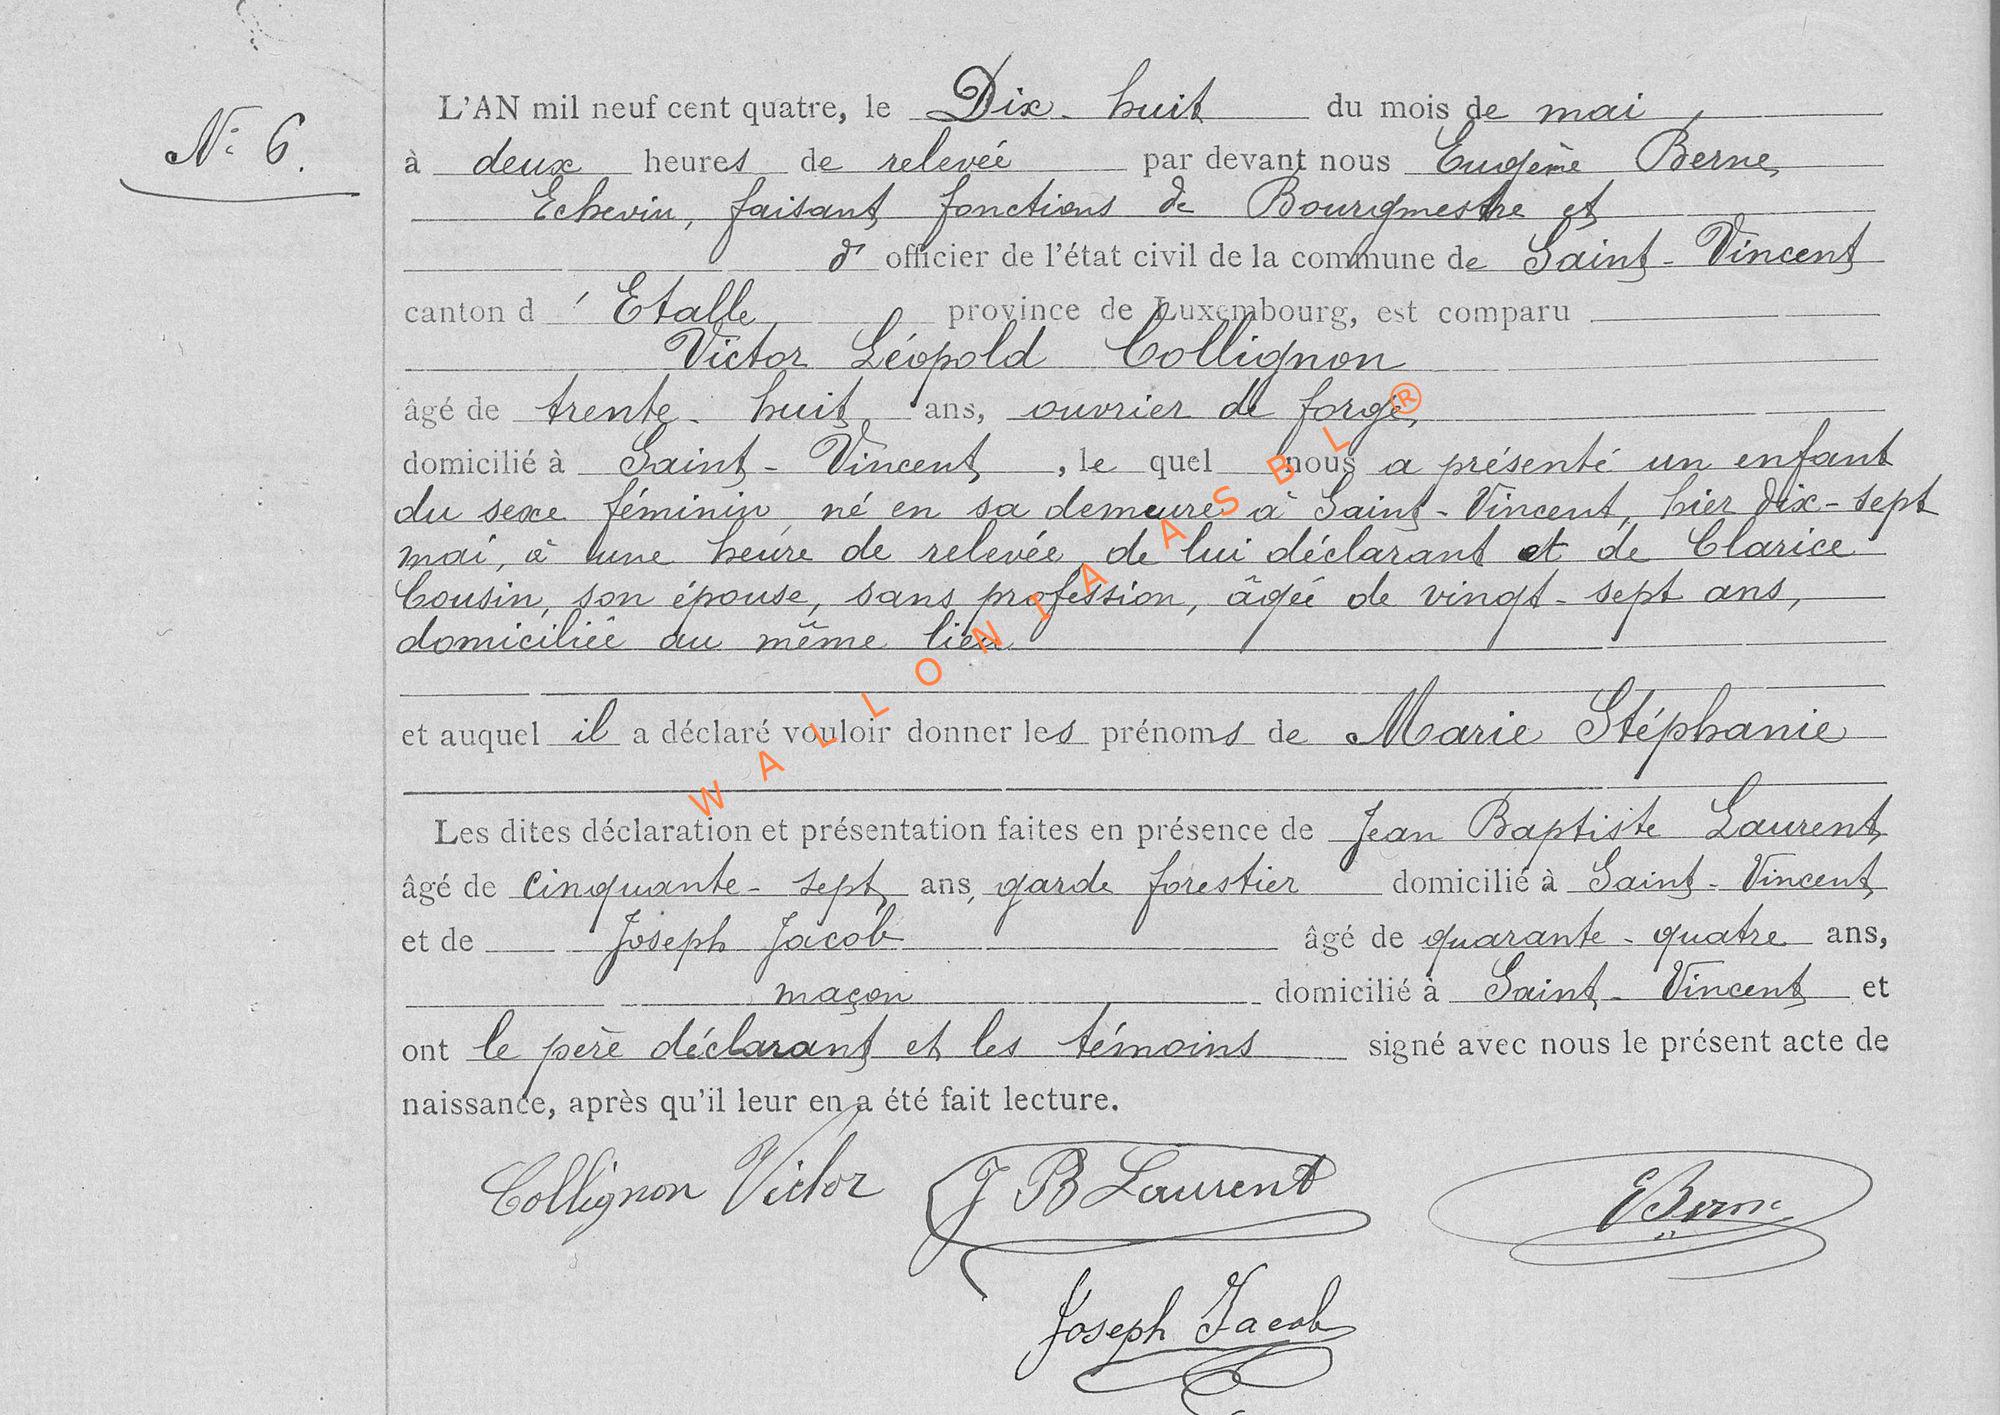 N° 6.
L'AN mil neuf cent quatre, le Dix-huit du mois de mai
à deux heures de relevée par devant nous Eugène Berne,
Echevin, faisant fonctions de Bourgmestre et
d' officier de l'état civil de la commune de Saint-Vincent
canton d'Etalle province de Luxembourg, est comparu
Victor Léopold Collignon
âgé de trente-huit ans, ouvrier de forge,
domicilié à Saint-Vincent, le quel nous a présenté un enfant
du sexe féminin, né en sa demeure à Saint-Vincent, hier dix-sept
mai, à une heure de relevée, de lui déclarant et de Clarice
Cousin, son épouse, sans profession, âgée de vingt-sept ans,
domiciliée au même lieu
et auquel il a déclaré vouloir donner les prénoms de Marie Stéphanie
Les dites déclaration et présentation faites en présence de Jean Baptiste Laurent,
âgé de cinquante-sept ans, garde forestier domicilié à Saint-Vincent,
et de Joseph Jacob âgé de quarante-quatre ans,
maçon domicilié à Saint-Vincent et
ont le père déclarant et les témoins signé avec nous le présent acte de
naissance, après qu'il leur en a été fait lecture.
Collignon Victor J B Laurent E Berne
Joseph Jacob
WALLONIA ASBL ®